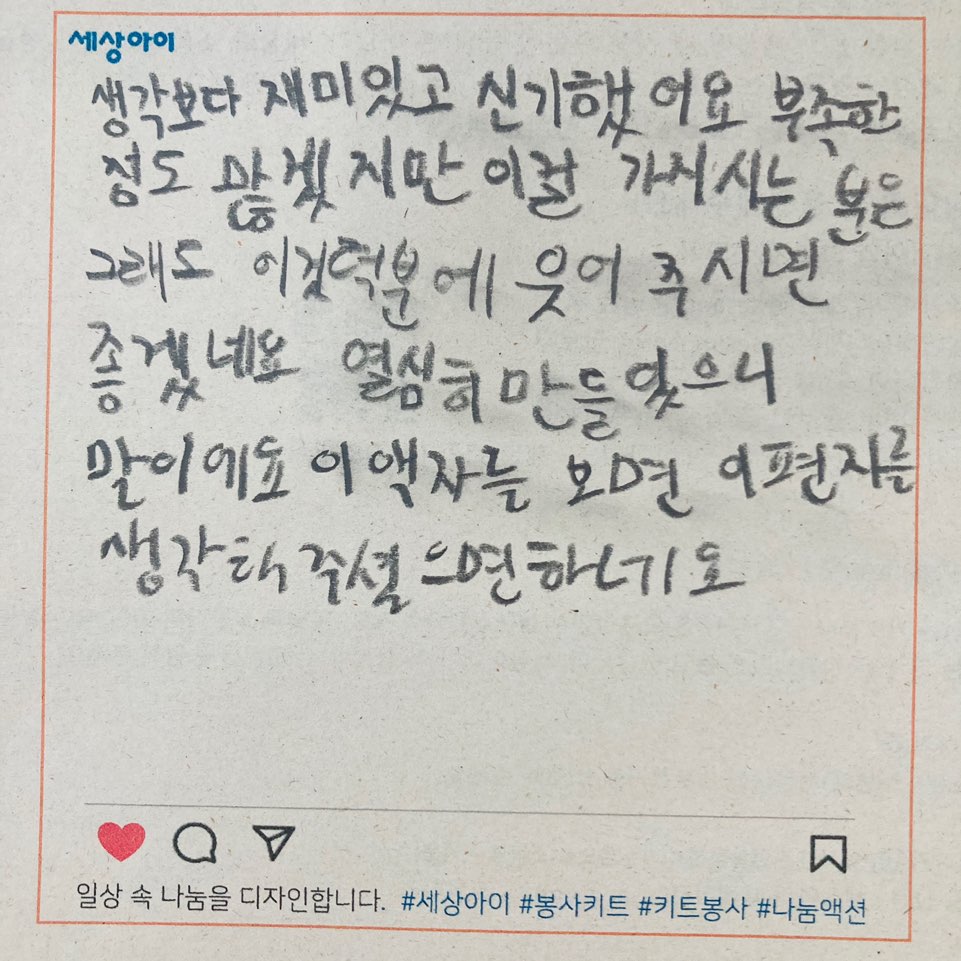 세상아이
생각보다 재미있고 신기했어요 부족한
점도 많겠지만 이걸 가지시는 분은
그래도 이것덕분에 웃어 주시면
좋겠네요 열심히 만들었으니
말이에요 이 액자를 보면 이편지를
생각해 주셨으면하네요
일상 속 나눔을 디자인합니다. #세상아이 #봉사키트 #키트봉사 #나눔액션